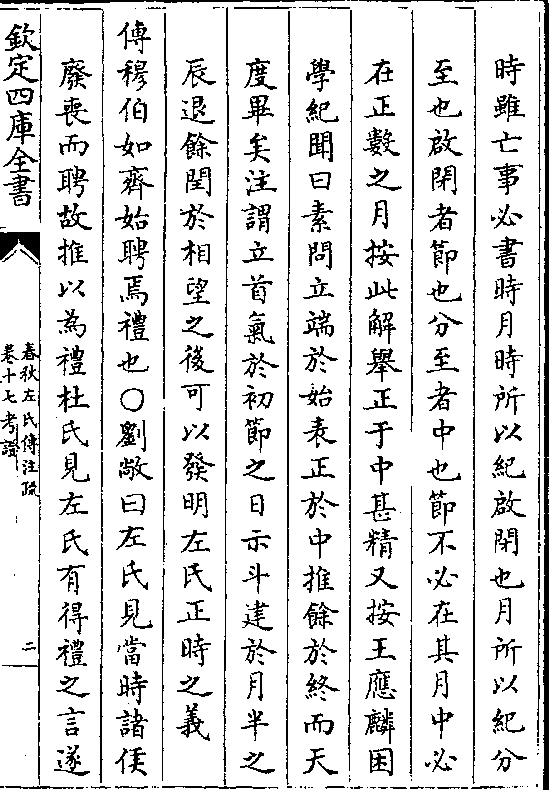 時雖亡事必書時月時所以紀啟閉也月所以紀分
至也啟閉者節也分至者中也節不必在其月中必
在正數之月按此解舉正于中甚精又按王應麟困
學紀聞曰素問立端於始表正於中推餘於終而天
度畢矣注謂立首氣於初節之日示斗建於月半之
辰退餘閏於相望之後可以發明左氏正時之義
傳穆伯如齊始聘焉禮也○劉敞曰左氏見當時諸侯
廢喪而聘故推以為禮杜氏見左氏有得禮之言遂
欽定四庫全書
春秋左氏傳注疏
卷十七考證
二